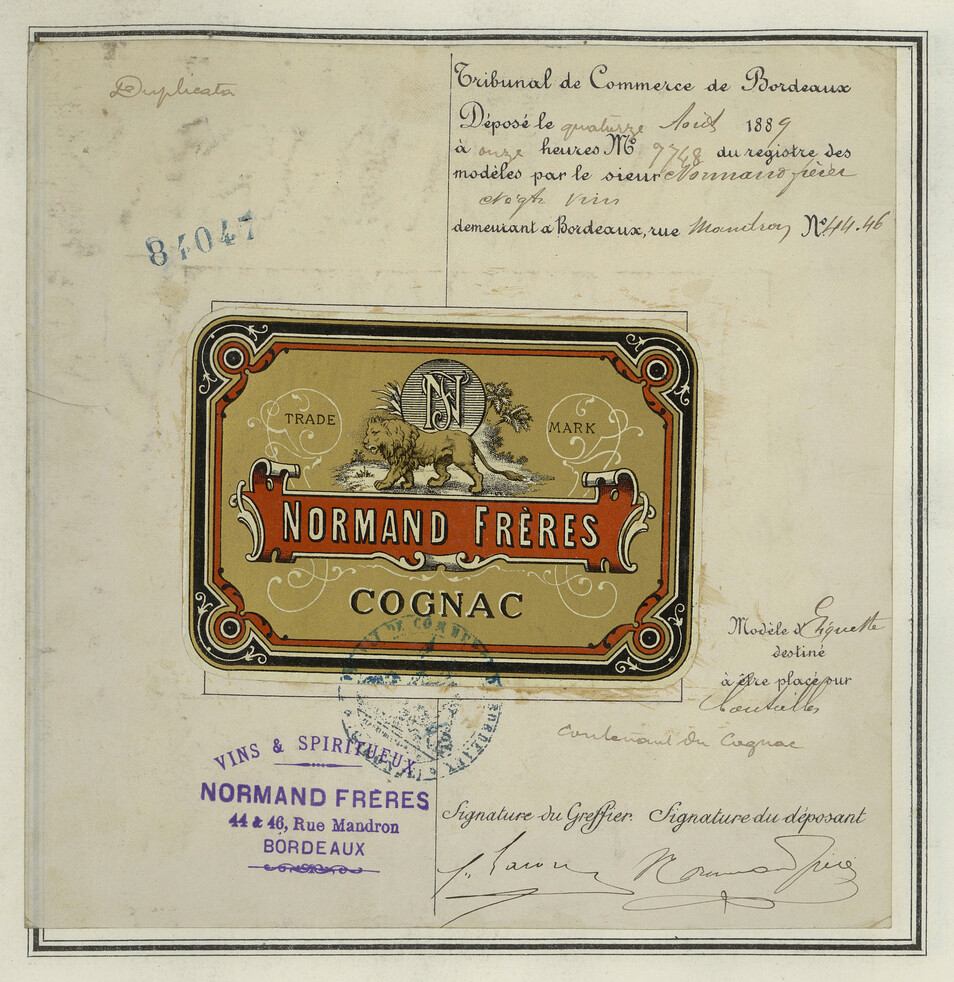 Duplicata
Tribunal de Commerce de Bordeaux
Déposé le quatorze Août 1889
à onze heures Nº 9748 du registre des
modèles par le sieur Normand frères
Négts Vins
demeurant à Bordeaux, rue Mandron Nº 44.46
84047
NF
TRADE MARK
NORMAND FRÈRES
COGNAC
Modèle d'Etiquette
destiné
à être placé sur
bouteilles
contenant du Cognac
VINS & SPIRITUEUX
NORMAND FRÈRES
44 & 46, Rue Mandron
BORDEAUX
Signature du Greffier. Signature du déposant
Normand frères